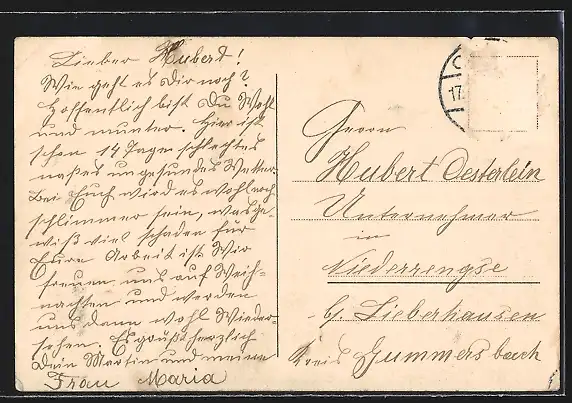 Lieber Hubert!
Wie geht es Dir noch?
Hoffentlich bist Du Wohl
und munter. Hier ist
schon 14 Tage schlechtes
naßes ungesundes Wetter.
Bei Euch wird es wohl noch
schlimmer sein, was ge-
wiß viel schaden für
Eure Arbeit ist. Wir
freuen uns auf Weih-
nachten und werden
uns dann wohl Wieder-
sehen. Es grüßt herzlich
Dein Martin und meine
Frau Maria
17.
Herrn
Hubert Oesterlein
Unternehmer
in
Niederrengse
b/ Lieberhausen
Kreis Gummersbach